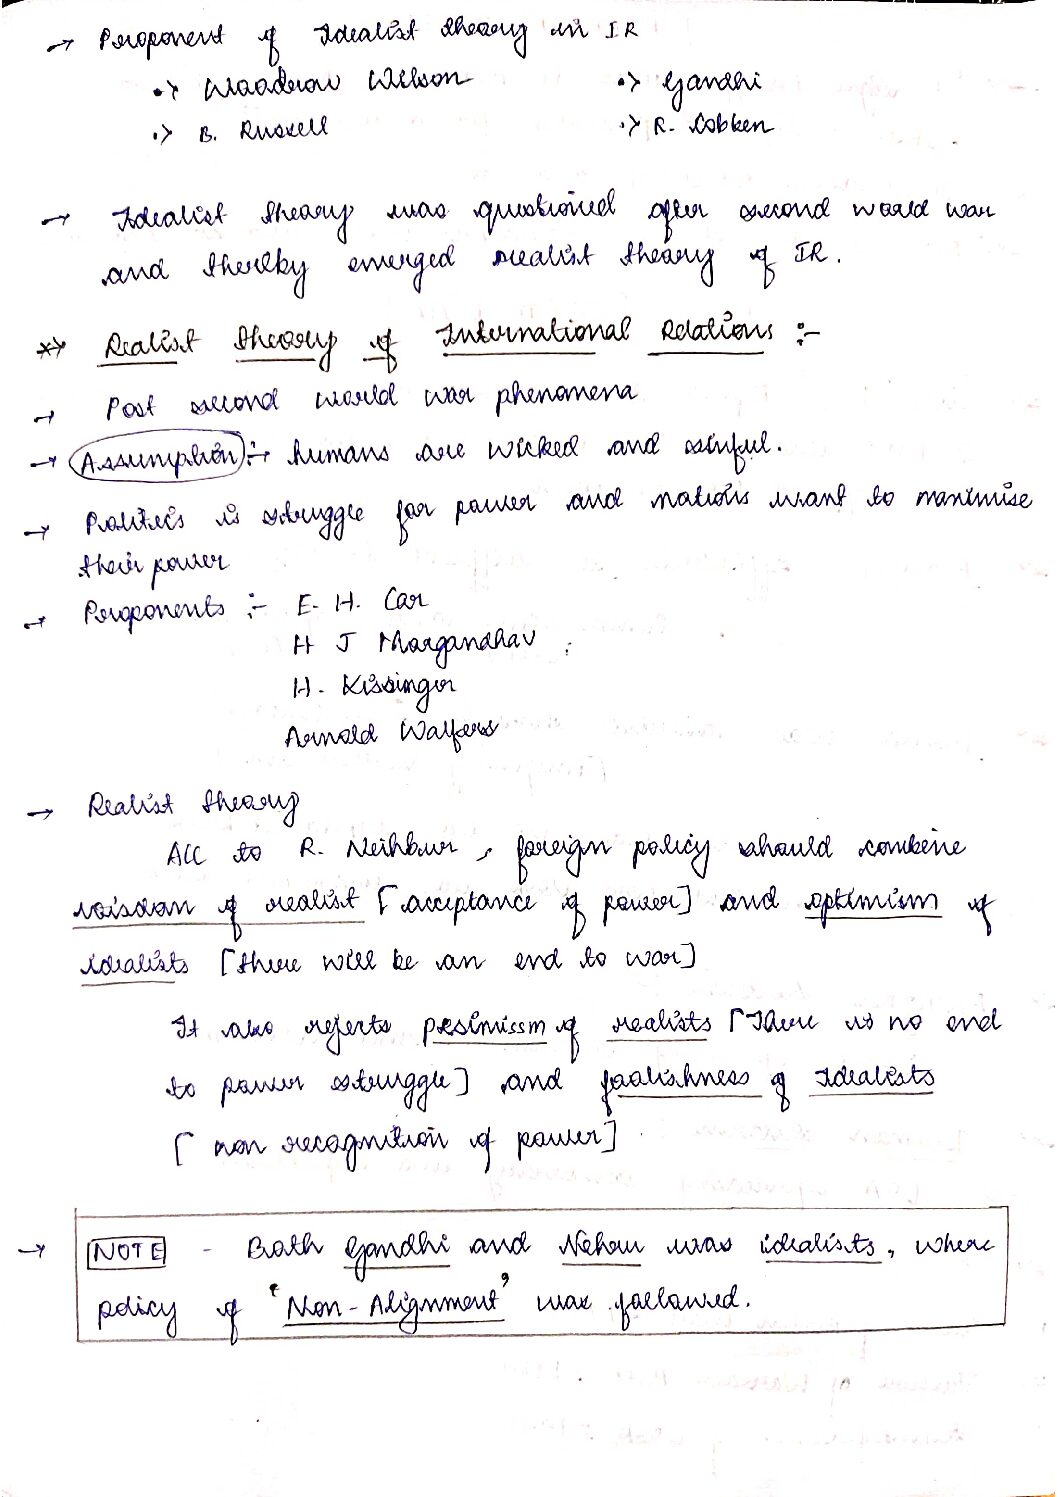 → Proponent of Idealist theory in IR
•> Woodrow Wilson •> Gandhi
•> B. Russell •> R. Cobben
→ Idealist theory was questioned after second world war
and thereby emerged realist theory of IR.
** Realist theory of International Relations :-
→ Post second world war phenomena
→ Assumption :→ humans are wicked and sinful.
→ Politics is struggle for power and nations want to maximise
their power
→ Proponents :- E. H. Car
H J Morgandhav
H. Kissinger
Arnold Walfers
→ Realist theory
Acc to R. Neihbur, foreign policy should combine
wisdom of realist [acceptance of power] and optimism of
idealists [there will be an end to war]
It also rejects pesimissm of realists [There is no end
to power struggle] and foolishness of Idealists
[non recognition of power]
→ NOTE - Both Gandhi and Nehru was idealists, where
policy of 'Non-Alignment' was followed.